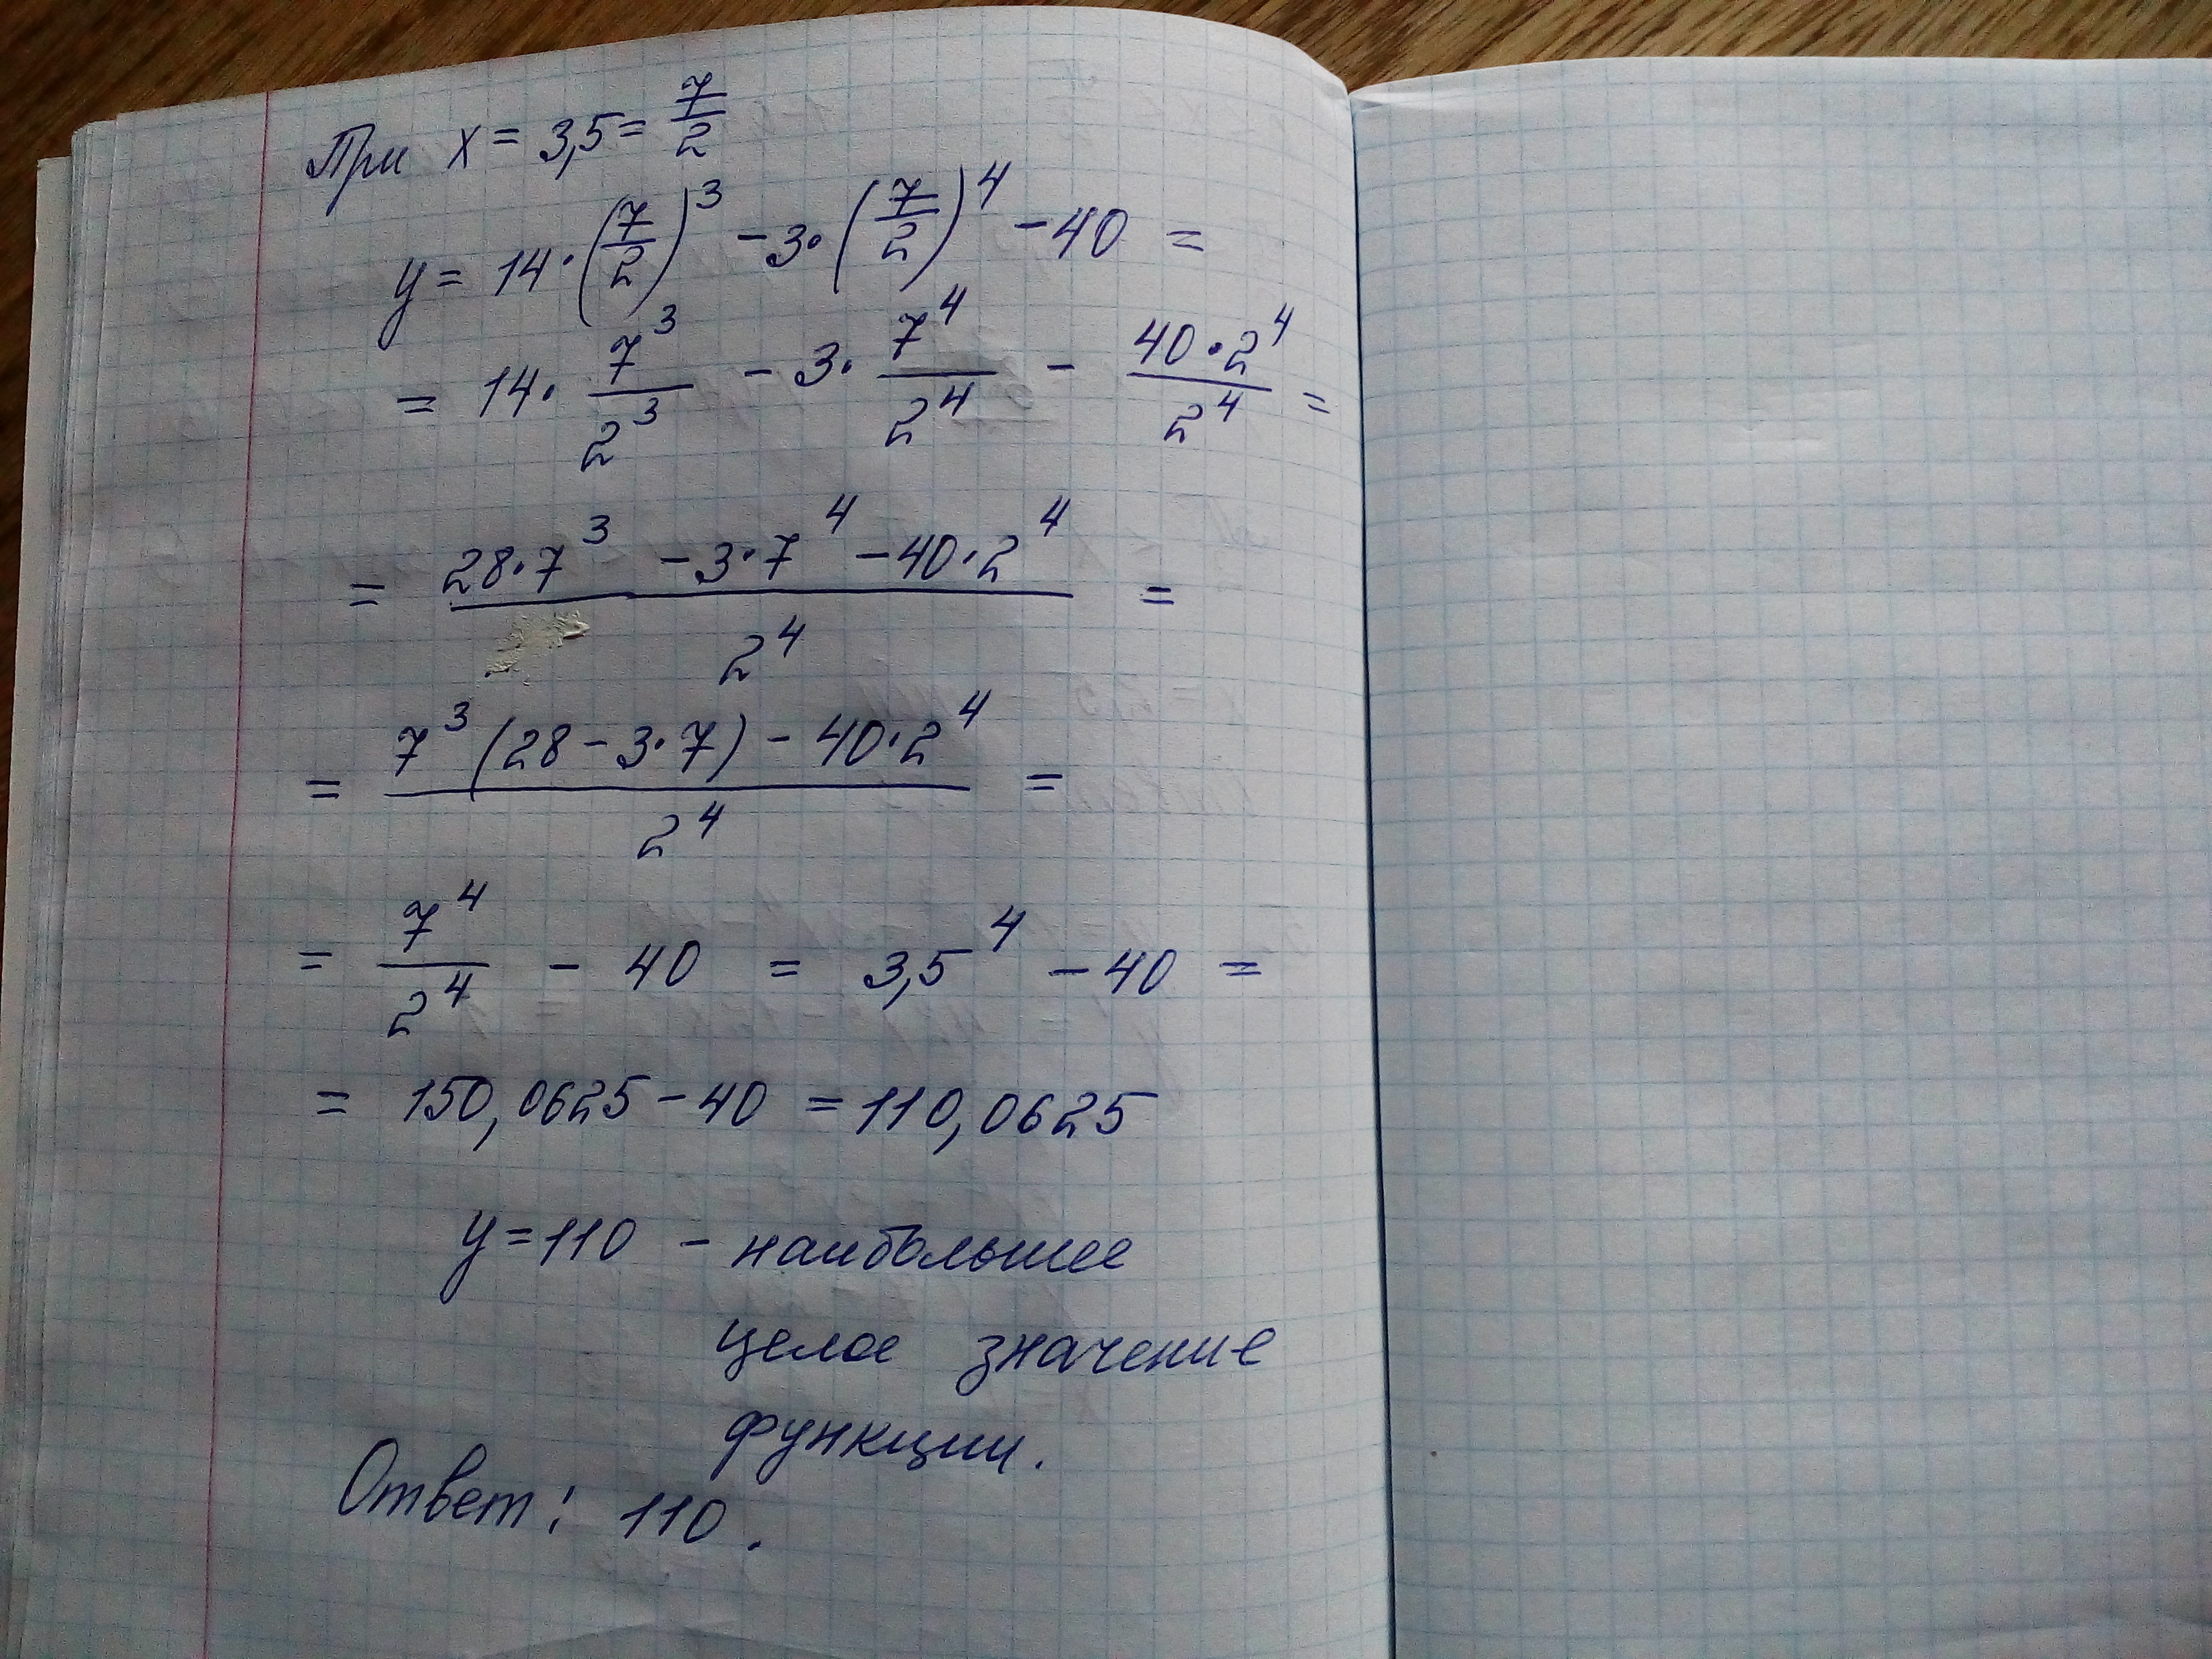 При x = 3,5 = 7/2
y = 14·(7/2)³ - 3·(7/2)⁴ - 40 =
= 14· 7³/2³ - 3· 7⁴/2⁴ - 40·2⁴/2⁴ =
= (28·7³ - 3·7⁴ - 40·2⁴)/2⁴ =
= (7³(28 - 3·7) - 40·2⁴)/2⁴ =
= 7⁴/2⁴ - 40 = 3,5⁴ - 40 =
= 150,0625 - 40 = 110,0625
y = 110 - наибольшее
целое значение
функции.
Ответ: 110.